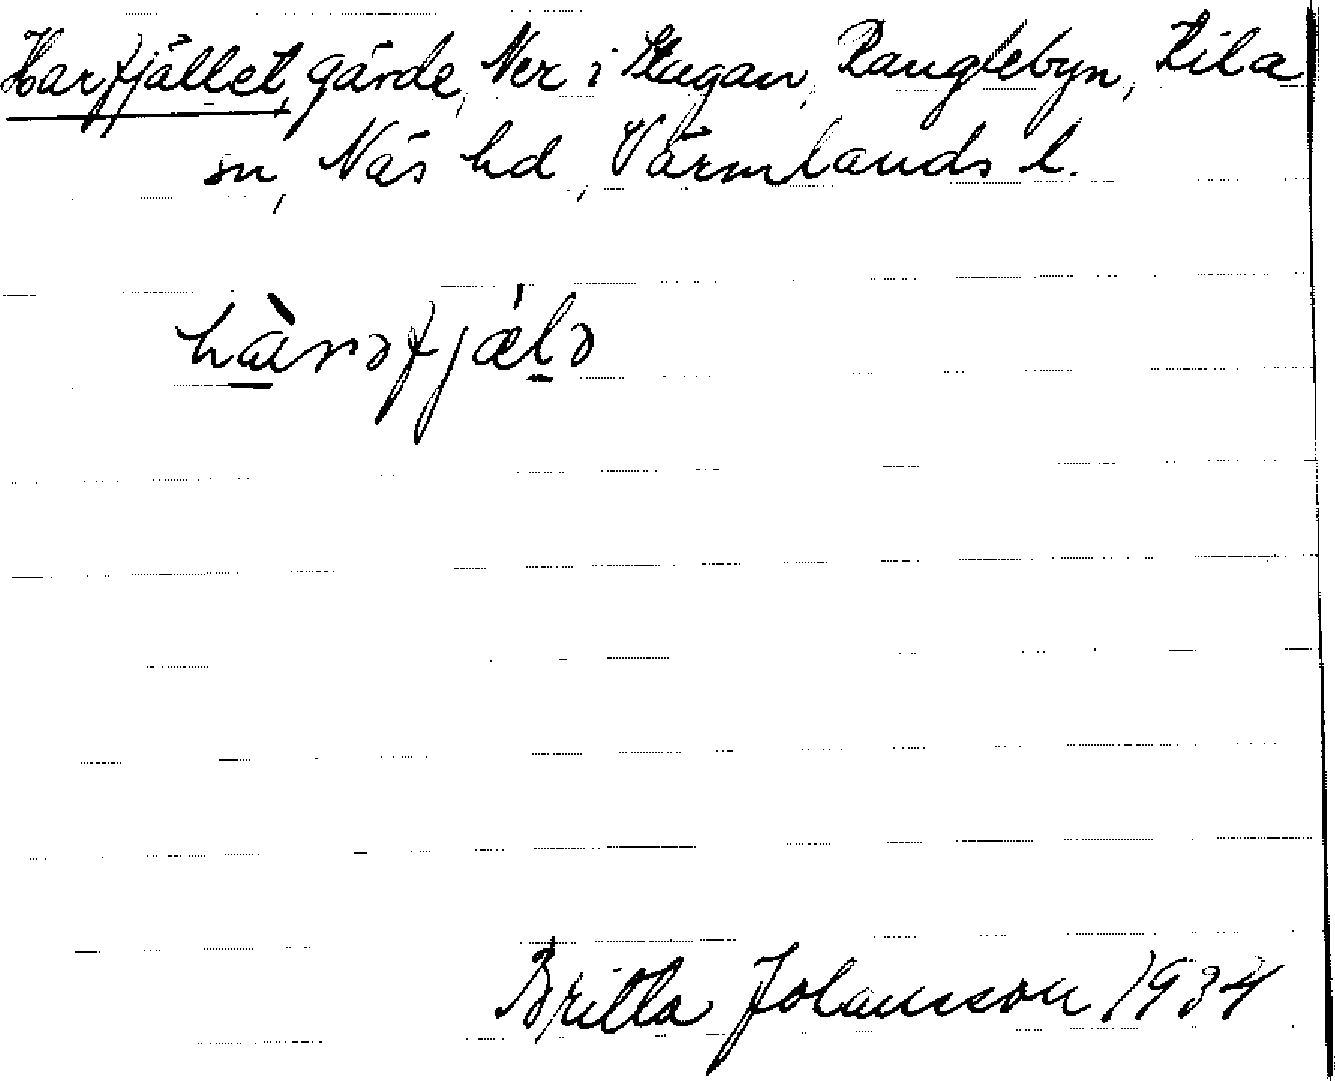 Harfjället, gärde, Ner i Stugan, Ranglebyn, Kila
sn, Näs hd, Värmlands l.
hàrəfjælə
Britta Johansson 1934